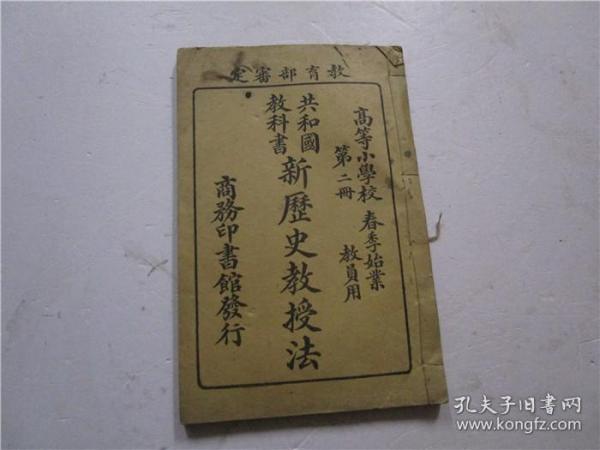 教育部審定
高等小學校 春季始業
第二冊 教員用
共和國
教科書
新歷史教授法
商務印書館發行
孔夫子旧书网
www.kongfz.com